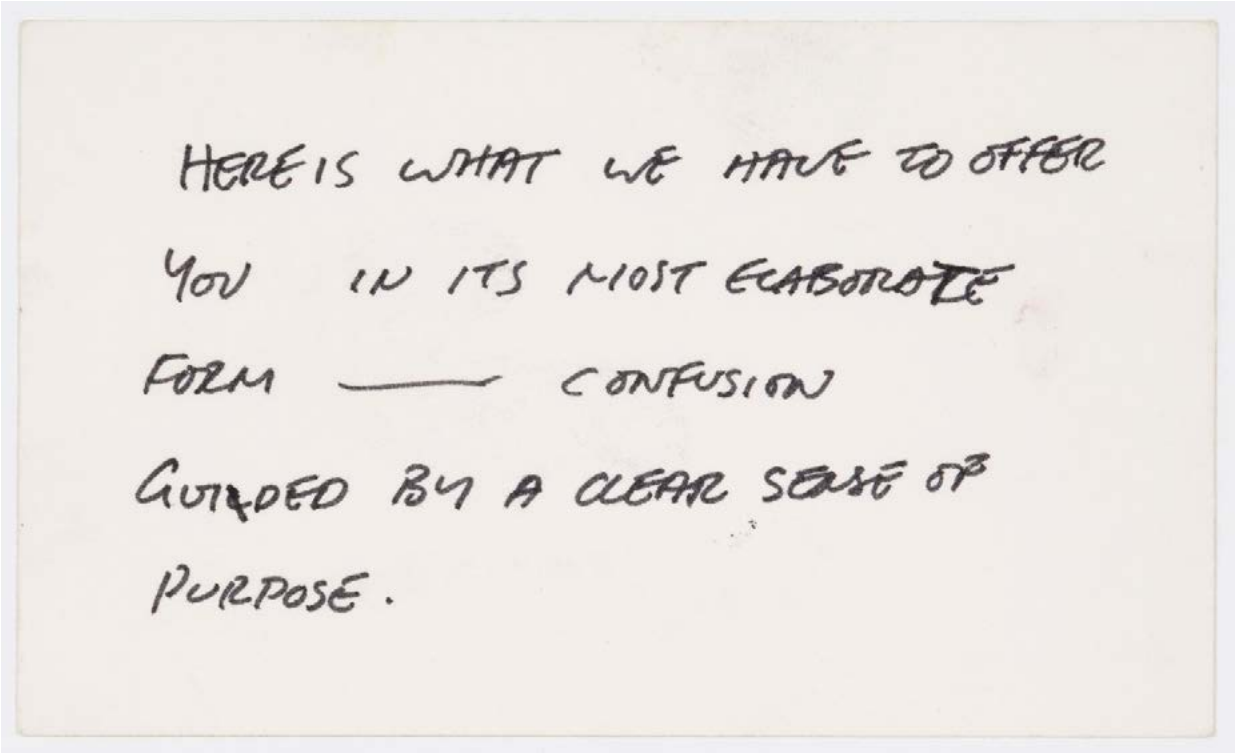 HERE IS WHAT WE HAVE TO OFFER
YOU IN ITS MOST ELABORATE
FORM — CONFUSION
GUIDED BY A CLEAR SENSE OF
PURPOSE.